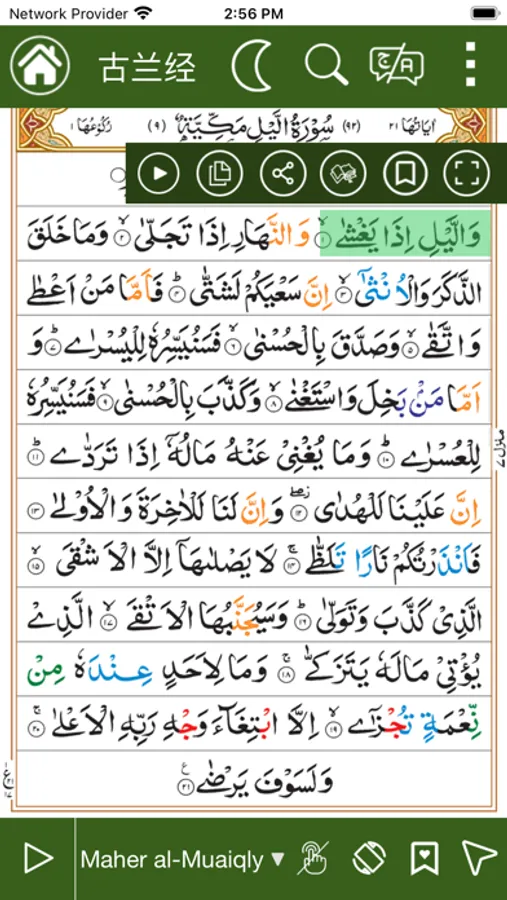 Network Provider 2:56 PM
古兰经
اٰیاتُهَا ٢١ (٩٢) سُوْرَةُ الَّيْلِ مَكِّيَّةٌ (٩) رُكُوْعُهَا ١
وَالَّيْلِ اِذَا يَغْشٰى ۙ‏﴿۱﴾ وَالنَّهَارِ اِذَا تَجَلّٰى ۙ‏﴿۲﴾ وَمَا خَلَقَ
الذَّكَرَ وَالْاُنْثٰٓى ۙ‏﴿۳﴾ اِنَّ سَعْيَكُمْ لَشَتّٰى ؕ‏﴿۴﴾ فَاَمَّا مَنْ اَعْطٰى
وَاتَّقٰى ۙ‏﴿۵﴾ وَصَدَّقَ بِالْحُسْنٰى ۙ‏﴿۶﴾ فَسَنُيَسِّرُهٗ لِلْيُسْرٰى ؕ‏﴿۷﴾ وَ
اَمَّا مَنْۢ بَخِلَ وَاسْتَغْنٰى ۙ‏﴿۸﴾ وَكَذَّبَ بِالْحُسْنٰى ۙ‏﴿۹﴾ فَسَنُيَسِّرُهٗ
لِلْعُسْرٰى ؕ‏﴿۱۰﴾ وَمَا يُغْنِىْ عَنْهُ مَالُهٗۤ اِذَا تَرَدّٰى ؕ‏﴿۱۱﴾
اِنَّ عَلَيْنَا لَلْهُدٰى ۖ‏﴿۱۲﴾ وَاِنَّ لَنَا لَلْاٰخِرَةَ وَالْاُوْلٰى ‏﴿۱۳﴾
فَاَنْذَرْتُكُمْ نَارًا تَلَظّٰى ۚ‏﴿۱۴﴾ لَا يَصْلٰٮهَاۤ اِلَّا الْاَشْقَى ۙ‏﴿۱۵﴾
الَّذِىْ كَذَّبَ وَتَوَلّٰى ؕ‏﴿۱۶﴾ وَسَيُجَنَّبُهَا الْاَتْقَى ۙ‏﴿۱۷﴾ الَّذِىْ
يُؤْتِىْ مَالَهٗ يَتَزَكّٰى ۚ‏﴿۱۸﴾ وَمَا لِاَحَدٍ عِنْدَهٗ مِنْ
نِّعْمَةٍ تُجْزٰٓى ۙ‏﴿۱۹﴾ اِلَّا ابْتِغَآءَ وَجْهِ رَبِّهِ الْاَعْلٰى ۚ‏﴿۲۰﴾
وَلَسَوْفَ يَرْضٰى ‏﴿۲۱﴾
Maher al-Muaiqly